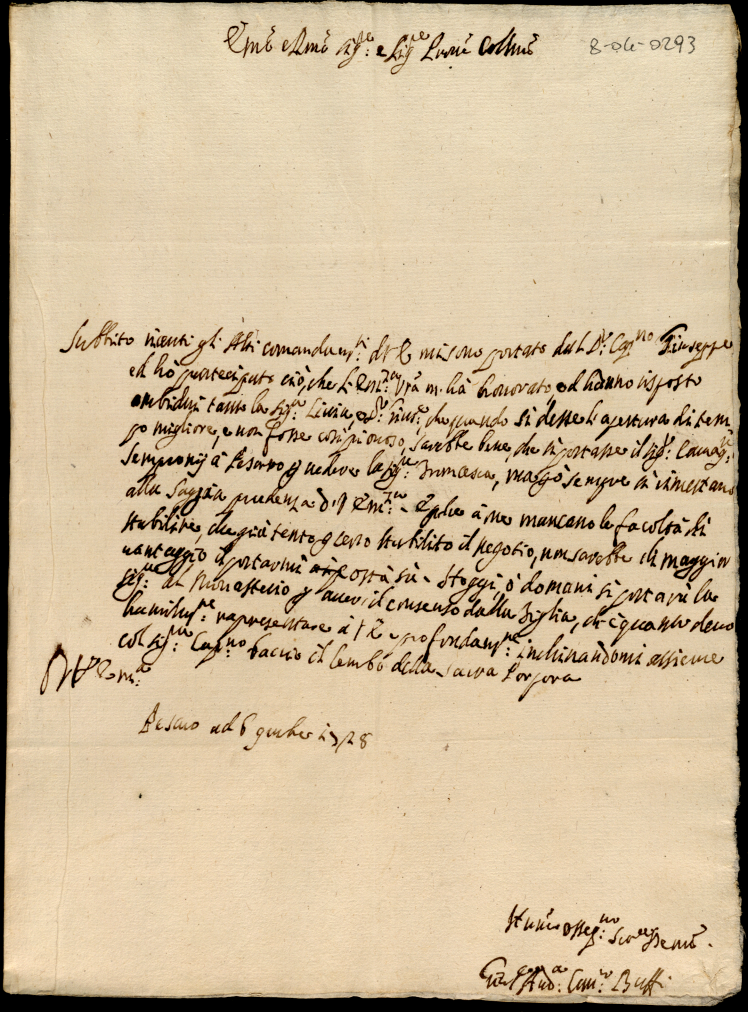 8-04-0293
Em̃o e Rm̃o Sig.re e Sig.re Prone Collmo
Subbito ricevuti gli Alti comandam.ti di V E mi sono portato dal Sr. Cap.no Giuseppe
ed hò partecipato ciò, che l'Em.za Vrã m'hà honorato, ed hanno risposto
ambidui tanto la Sig.ra Livia, che quando si desse l'apertura di tem
po migliore, e non fosse così piovoso, sarebbe bene, che si portasse il Sig.r
Sempronij à Pesaro p vedere la Sig.ra Francesca, mà però sempre si rimettano
alla Saggia prudenza di V Em.za - E plche à me mancano le facoltà di
stabilire, che già tengo p certo stabilito il negotio, non sarebbe di maggior
vantaggio il portarmi costà sù - Hoggi, ò domani si portarà la
Sig.ra al Monasterio p aver il consenso dalla Figlia, ch'è quanto devo
humilm.te rappresentare à V E e profondam.te inchinandomi assieme
col Sig.r Cap.no bacio il lembo della Sacra Porpora
Di V Em.za
Pesaro ad 6 1728
Hum.o Osseq.mo Ser.re
Buffi